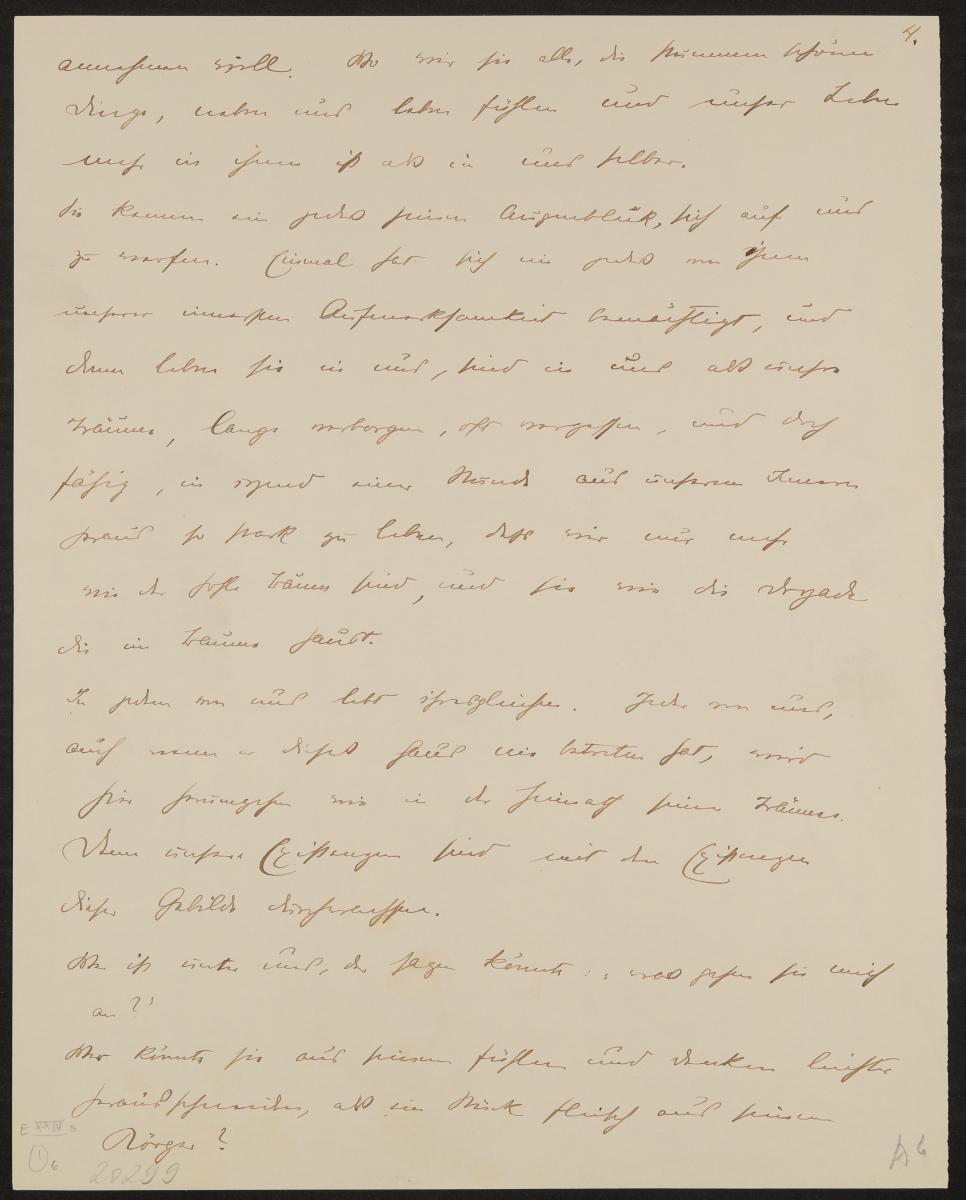 4.
annehmen will. Wo wir sie alle, die stummen schönen
Dinge, neben uns leben fühlen und unser Leben
mehr in ihnen ist als in uns selber.
Sie kennen ein jedes seinen Augenblick, sich auf uns
zu werfen. Einmal hat sich ein jedes von ihnen
unserer innersten Aufmerksamkeit bemächtigt, und
denn leben sie in uns, sind in uns als unsere
Träume, lange verborgen, oft vergessen, und doch
fähig, in irgend einer Stunde aus unserem Innern
heraus so stark zu leben, dass wir nur mehr
wie der hohle Baum sind, und sie wie die Dryade
die im Baume haust.
In jedem von uns lebt ihresgleichen. Jeder von uns,
auch wenn er dieses Haus nie betreten hat, wird
hier herumgehen wie in der Heimath seiner Träume.
Denn unsere Existenzen sind mit den Existenzen
dieser Gebilde durchwachsen.
Wer ist unter uns, der sagen könnte: „was gehen sie mich
an?"
Wer könnte sie aus seinem Fühlen und Denken leichter
herausschneiden, als ein Stück Fleisch aus seinem
Körper?
E XXIV 3
1) 6
20299
A 6